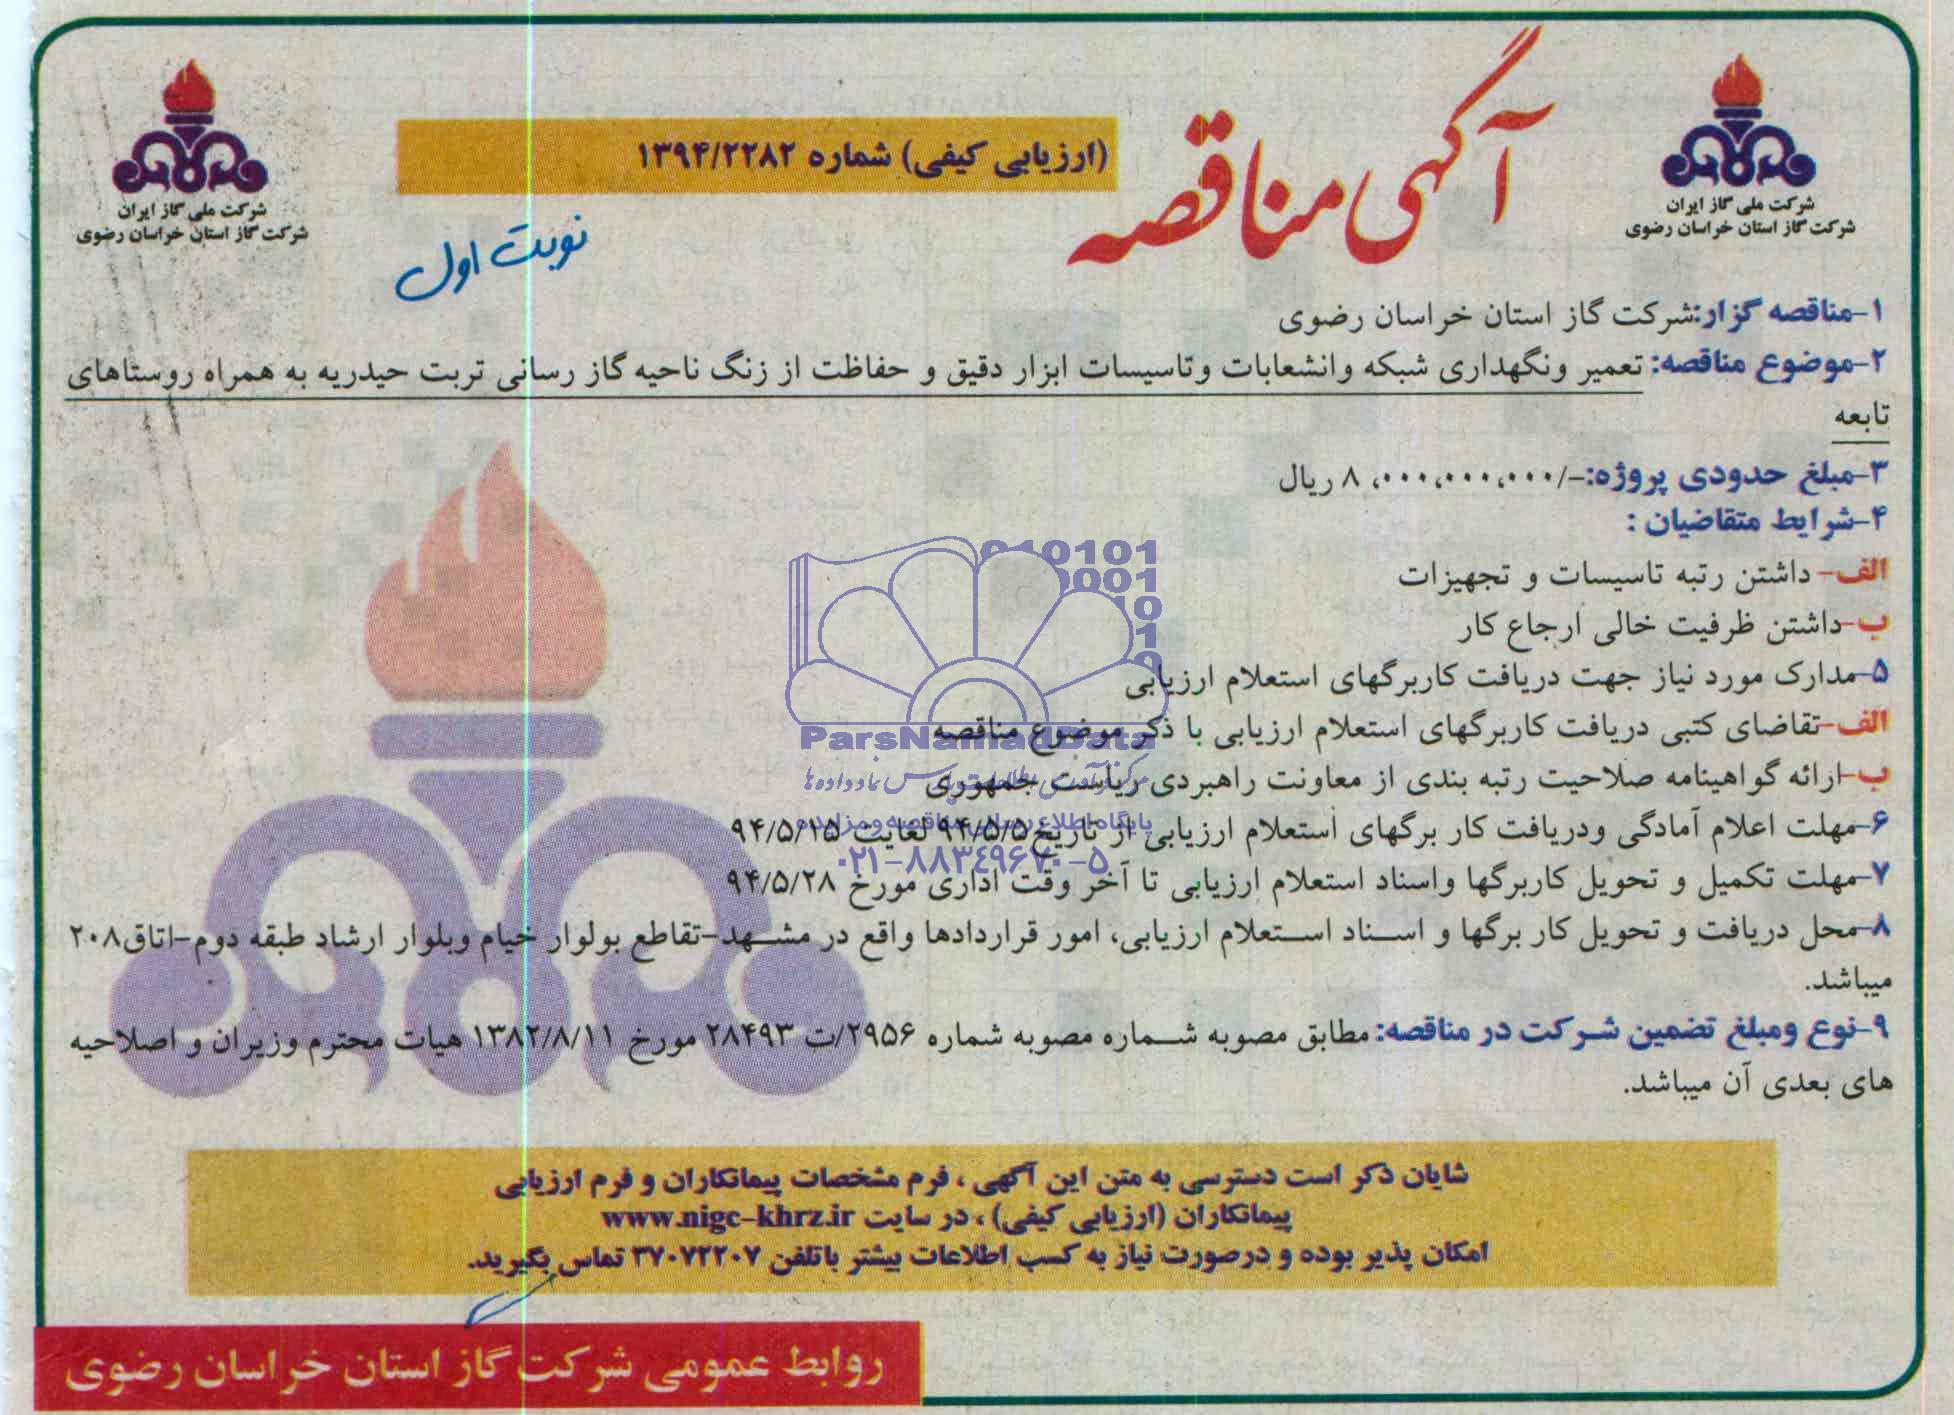 آگهی مناقصه
(ارزیابی کیفی) شماره ۱۳۹۴/۲۲۸۲
نوبت اول
شرکت ملی گاز ایران
شرکت گاز استان خراسان رضوی
شرکت ملی گاز ایران
شرکت گاز استان خراسان رضوی
۱-مناقصه گزار:شرکت گاز استان خراسان رضوی
۲-موضوع مناقصه: تعمیر ونگهداری شبکه وانشعابات وتاسیسات ابزار دقیق و حفاظت از زنگ ناحیه گاز رسانی تربت حیدریه به همراه روستاهای
تابعه
۳-مبلغ حدودی پروژه:-/۸،۰۰۰،۰۰۰،۰۰۰ ریال
۴-شرایط متقاضیان :
الف- داشتن رتبه تاسیسات و تجهیزات
ب-داشتن ظرفیت خالی ارجاع کار
۵-مدارک مورد نیاز جهت دریافت کاربرگهای استعلام ارزیابی
الف-تقاضای کتبی دریافت کاربرگهای استعلام ارزیابی با ذکر موضوع مناقصه
ب-ارائه گواهینامه صلاحیت رتبه بندی از معاونت راهبردی ریاست جمهوری
۶-مهلت اعلام آمادگی ودریافت کار برگهای استعلام ارزیابی از تاریخ ۹۴/۵/۵ لغایت ۹۴/۵/۱۵
۷-مهلت تکمیل و تحویل کاربرگها واسناد استعلام ارزیابی تا آخر وقت اداری مورخ ۹۴/۵/۲۸
۸-محل دریافت و تحویل کار برگها و اسناد استعلام ارزیابی، امور قراردادها واقع در مشهد-تقاطع بولوار خیام وبلوار ارشاد طبقه دوم-اتاق۲۰۸
میباشد.
۹-نوع ومبلغ تضمین شرکت در مناقصه: مطابق مصوبه شماره مصوبه شماره ۲۹۵۶/ت ۲۸۴۹۳ مورخ ۱۳۸۲/۸/۱۱ هیات محترم وزیران و اصلاحیه
های بعدی آن میباشد.
شایان ذکر است دسترسی به متن این آگهی ، فرم مشخصات پیمانکاران و فرم ارزیابی
پیمانکاران (ارزیابی کیفی) ، در سایت www.nigc-khrz.ir
امکان پذیر بوده و درصورت نیاز به کسب اطلاعات بیشتر باتلفن ۳۷۰۷۲۲۰۷ تماس بگیرید.
روابط عمومی شرکت گاز استان خراسان رضوی
ParsNamadData
پایگاه اطلاع رسانی مناقصه و مزایده
۰۲۱-۸۸۳۴۹۶۷۰-۵